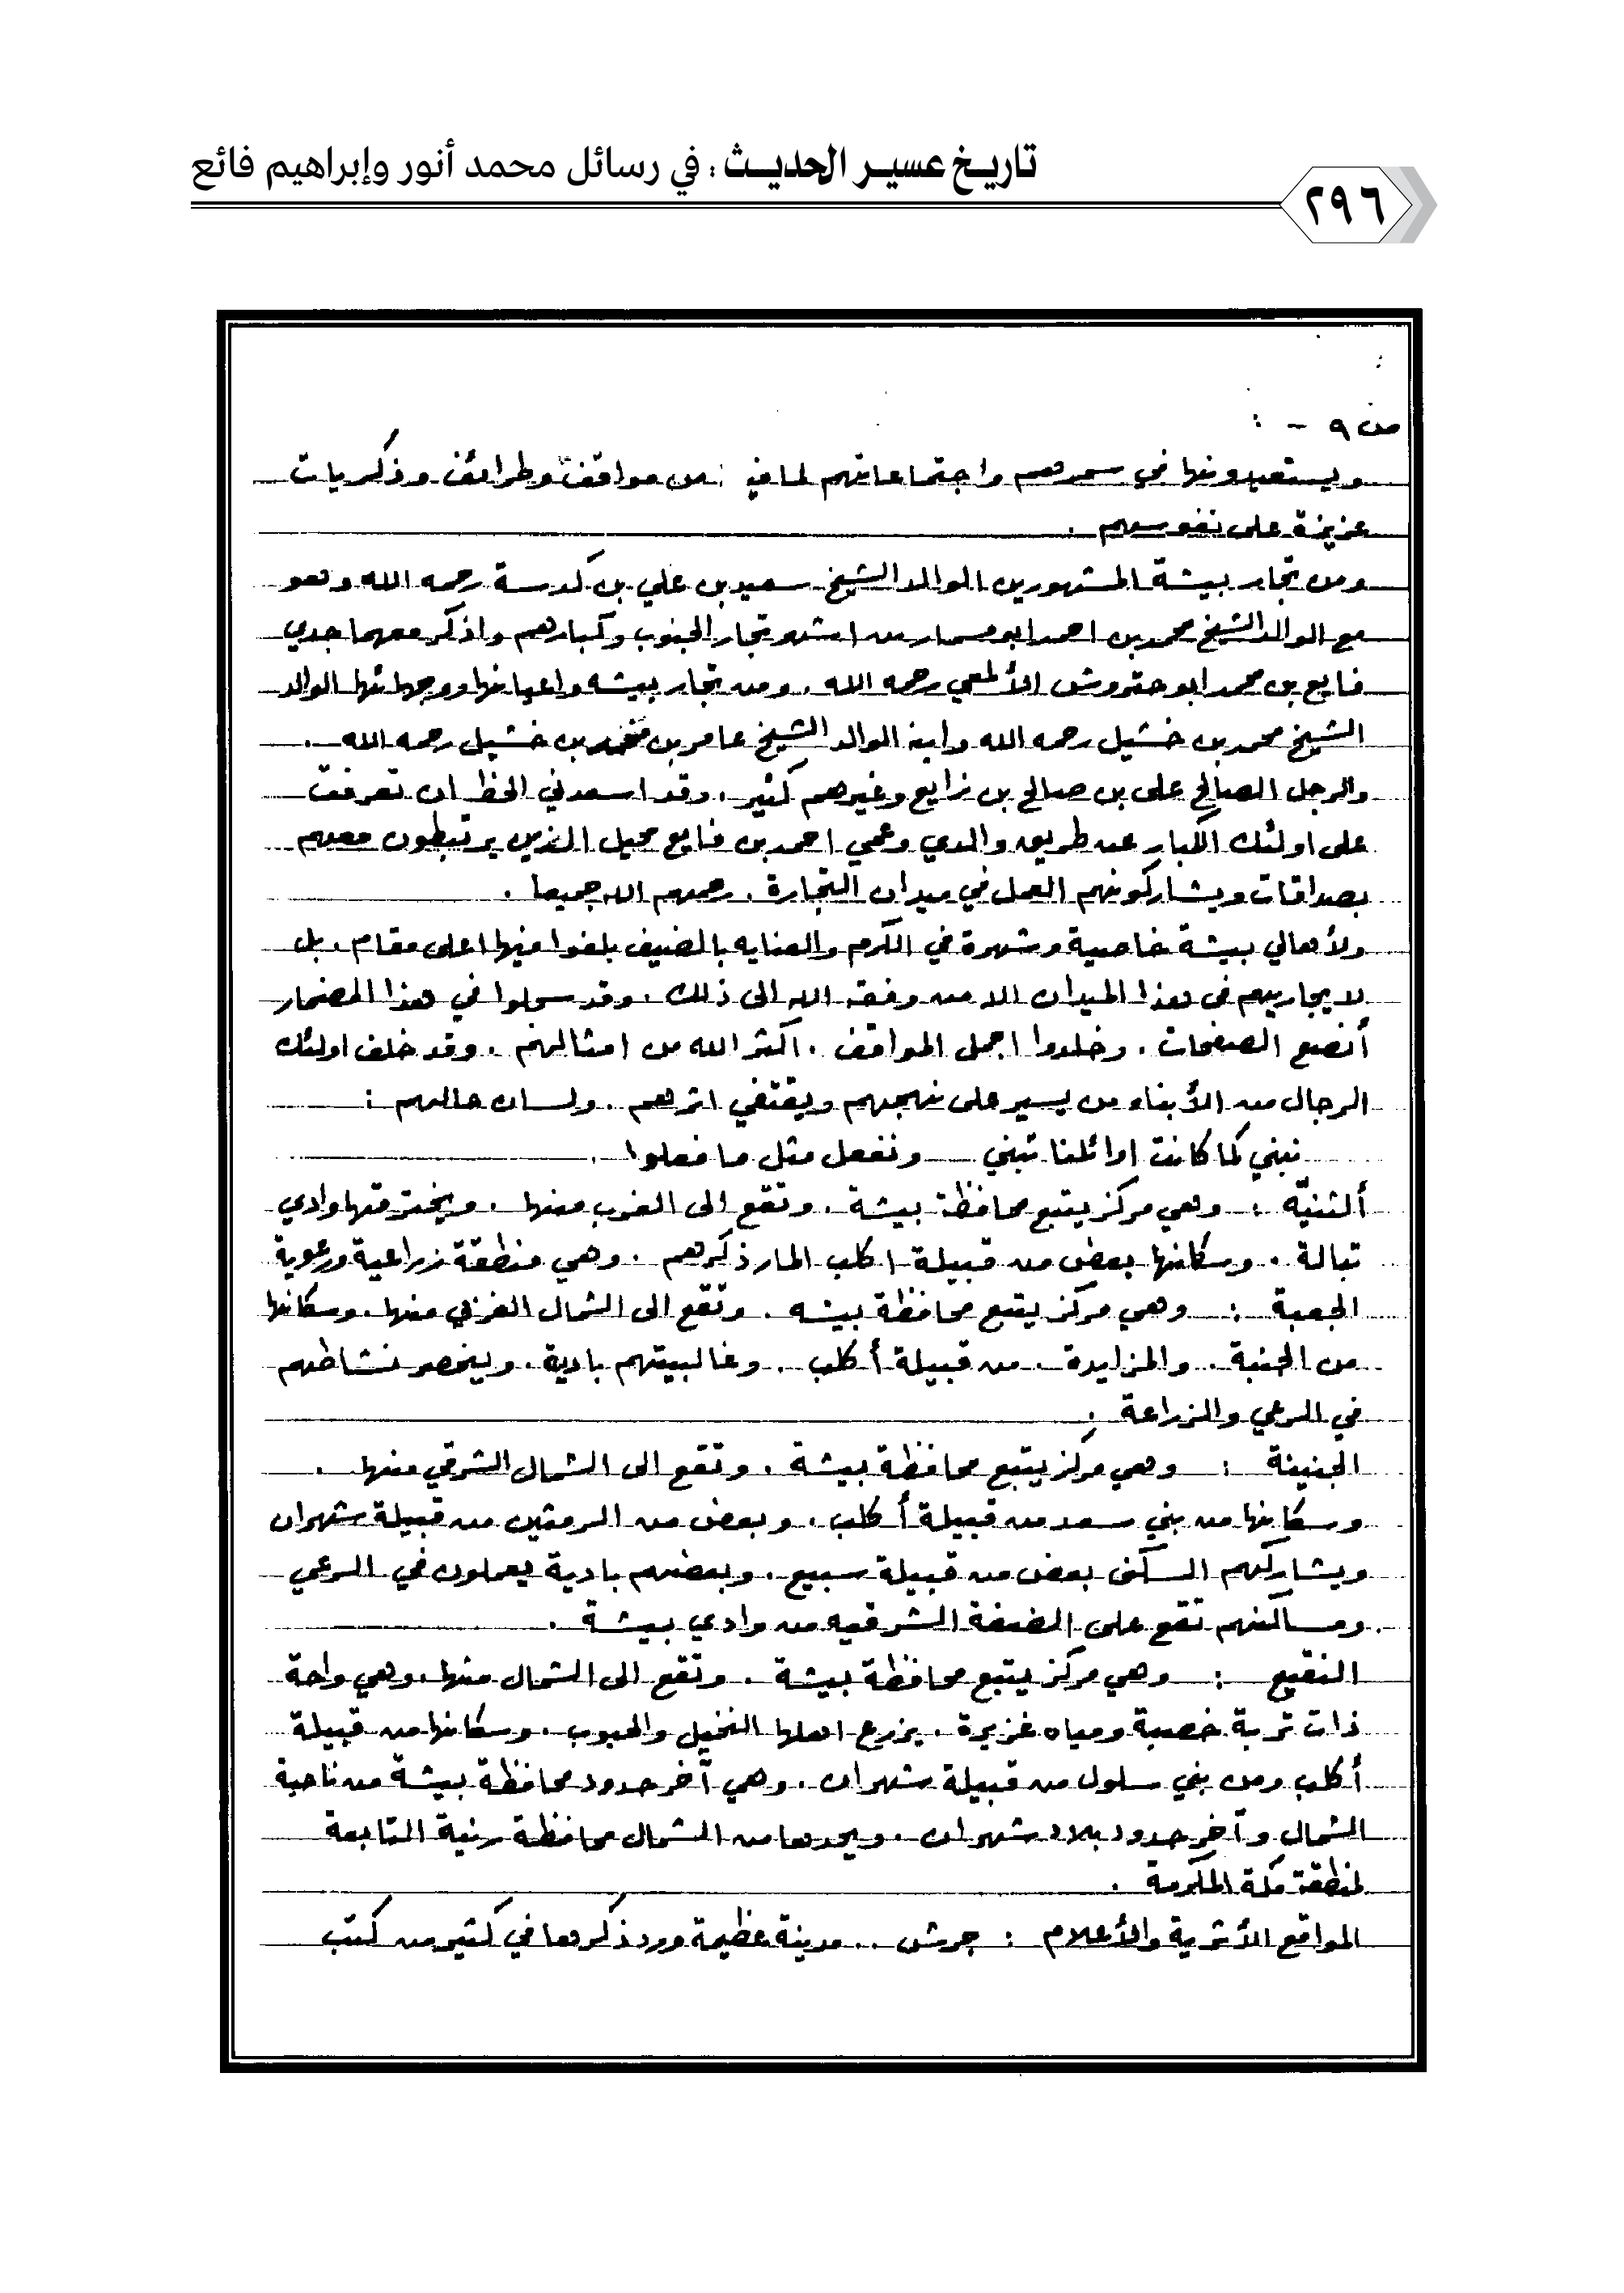 تاريخ عسير الحديث : في رسائل محمد أنور وإبراهيم فائع
٢٩٦
ص ٩ - :
ويستعيدونها في سمرهم واجتماعاتهم لما فيه من مواقف وطرائف وذكريات
عزيزة على نفوسهم .
ومن تجار بيشة المشهورين الوالد الشيخ سعيد بن علي بن كدسة رحمه الله وهو
مع الوالد الشيخ محمد بن احمد ابو مسمار من اشهر تجار الجنوب وكبارهم واذكر معهما جدي
فايع بن محمد ابو حتروش الألمعي رحمه الله . ومن تجار بيشه واعيانها ووجهائها الوالد
الشيخ محمد بن خشيل رحمه الله وابنه الوالد الشيخ عامر بن محمد بن خشيل رحمه الله .
والرجل الصالح على بن صالح بن زايع وغيرهم كثير . وقد اسعدني الحظ ان تعرفت
على اولئك الكبار عن طريق والدي وعمي احمد بن فايع محيل الذين يرتبطون معهم
بصداقات ويشاركونهم العمل في ميدان التجارة . رحمهم الله جميعا .
ولأهالي بيشة خاصية وشهرة في الكرم والعنايه بالضيف بلغوا فيها اعلى مقام . بل
لا يجاريهم في هذا الميدان الا من وفقه الله الى ذلك . وقد سجلوا في هذا المضمار
أنصع الصفحات . وخلدوا اجمل المواقف . اكثر الله من امثالهم . وقد خلف اولئك
الرجال من الأبناء من يسير على نهجهم ويقتفي اثرهم . ولسان حالهم :
نبني كما كانت اوائلنا تبني ونفعل مثل ما فعلوا .
ألثنيّه : وهي مركز يتبع محافظة بيشة . وتقع الى الغرب منها . ويخترقها وادي
تبالة . وسكانها بعض من قبيلة اكلب المار ذكرهم . وهي منطقة زراعية ورعوية
الجعبة : وهي مركز يتبع محافظة بيشه . وتقع الى الشمال الغربي منها . وسكانها
من الجنبة . والمزايدة . من قبيلة أكلب . وغالبيتهم بادية . وينحصر نشاطهم
في الرعي والزراعة .
الجنينة : وهي مركز يتبع محافظة بيشة . وتقع الى الشمال الشرقي منها .
وسكانها من بني سعد من قبيلة أكلب . وبعض من الرمثين من قبيلة شهران
ويشاركهم السكنى بعض من قبيلة سبيع . وبعضهم بادية يعملون في الرعي
ومساكنهم تقع على الضفة الشرقيه من وادي بيشة .
النقيع : وهي مركز يتبع محافظة بيشة . وتقع الى الشمال منها . وهي واحة
ذات تربة خصبة ومياه غزيرة . يزرع اهلها النخيل والحبوب . وسكانها من قبيلة
أكلب ومن بني سلول من قبيلة شهران . وهي آخر حدود محافظة بيشة من ناحية
الشمال وآخر حدود بلاد شهران . ويحدها من الشمال محافظة رنية التابعة
لمنطقة مكة المكرمة .
المواقع الأثرية والأعلام : جرش .. مدينة عظيمة ورد ذكرها في كثير من كتب